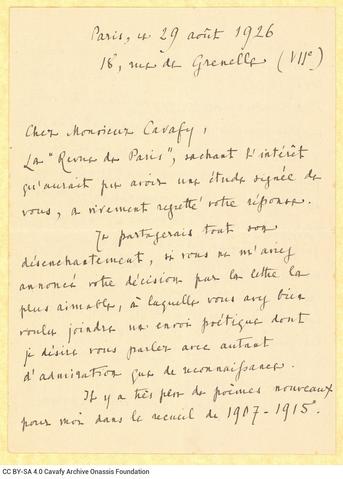 Paris, ce 29 août 1926
18, rue de Grenelle (VIIe)
Cher Monsieur Cavafy,
La "Revue de Paris", sachant l'intérêt
qu'aurait pu avoir une étude signée de
vous, a vivement regretté votre réponse.
Je partagerais tout son
désenchantement, si vous ne m'aviez
annoncé votre décision par la lettre la
plus aimable, à laquelle vous avez bien
voulu joindre un envoi poétique dont
je désire vous parler avec autant
d'admiration que de reconnaissance.
Il y a très peu de poèmes nouveaux
pour moi dans le recueil de 1907-1915.
CC BY-SA 4.0 Cavafy Archive Onassis Foundation